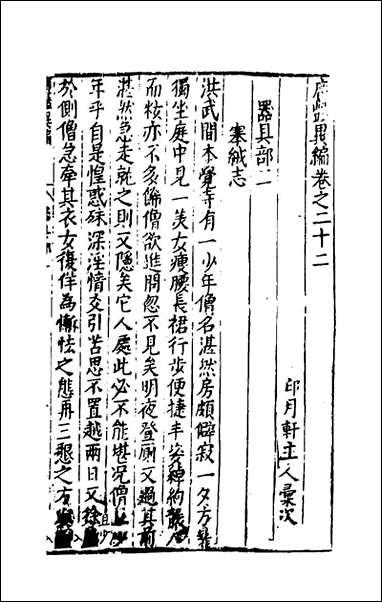 廣豔異編卷之二十二
印月軒主人彙次
器具部二
寨絨志
洪武間本覺寺有一少年僧名湛然房頗僻寂一夕方暮
獨坐庭中見一美女瘦腰長裙行步便捷丰姿綽約
而粧亦不多飾僧欲進問忽不見矣明夜登厠又過其前
湛然急走就之則又隱矣它人處此必不能堪况僧
年乎自是惶惑殊深淫情交引苦思不置越兩日又徐
於側僧急牽其衣女復佯為慚怯之態再三懇之方